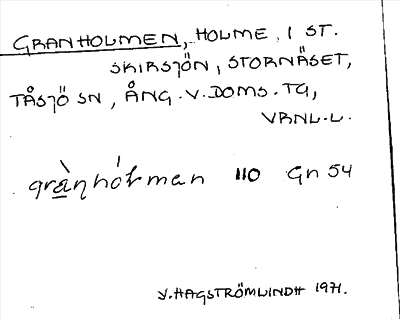 GRANHOLMEN, HOLME, I ST.
SKIRSJÖN, STORNÄSET,
TÅSJÖ SN, ÅNG.V.DOMS.TG,
VRNL.L.
gràṉhóɫman 110 Gn 54
V.HAGSTRÖMLINDH 1971.